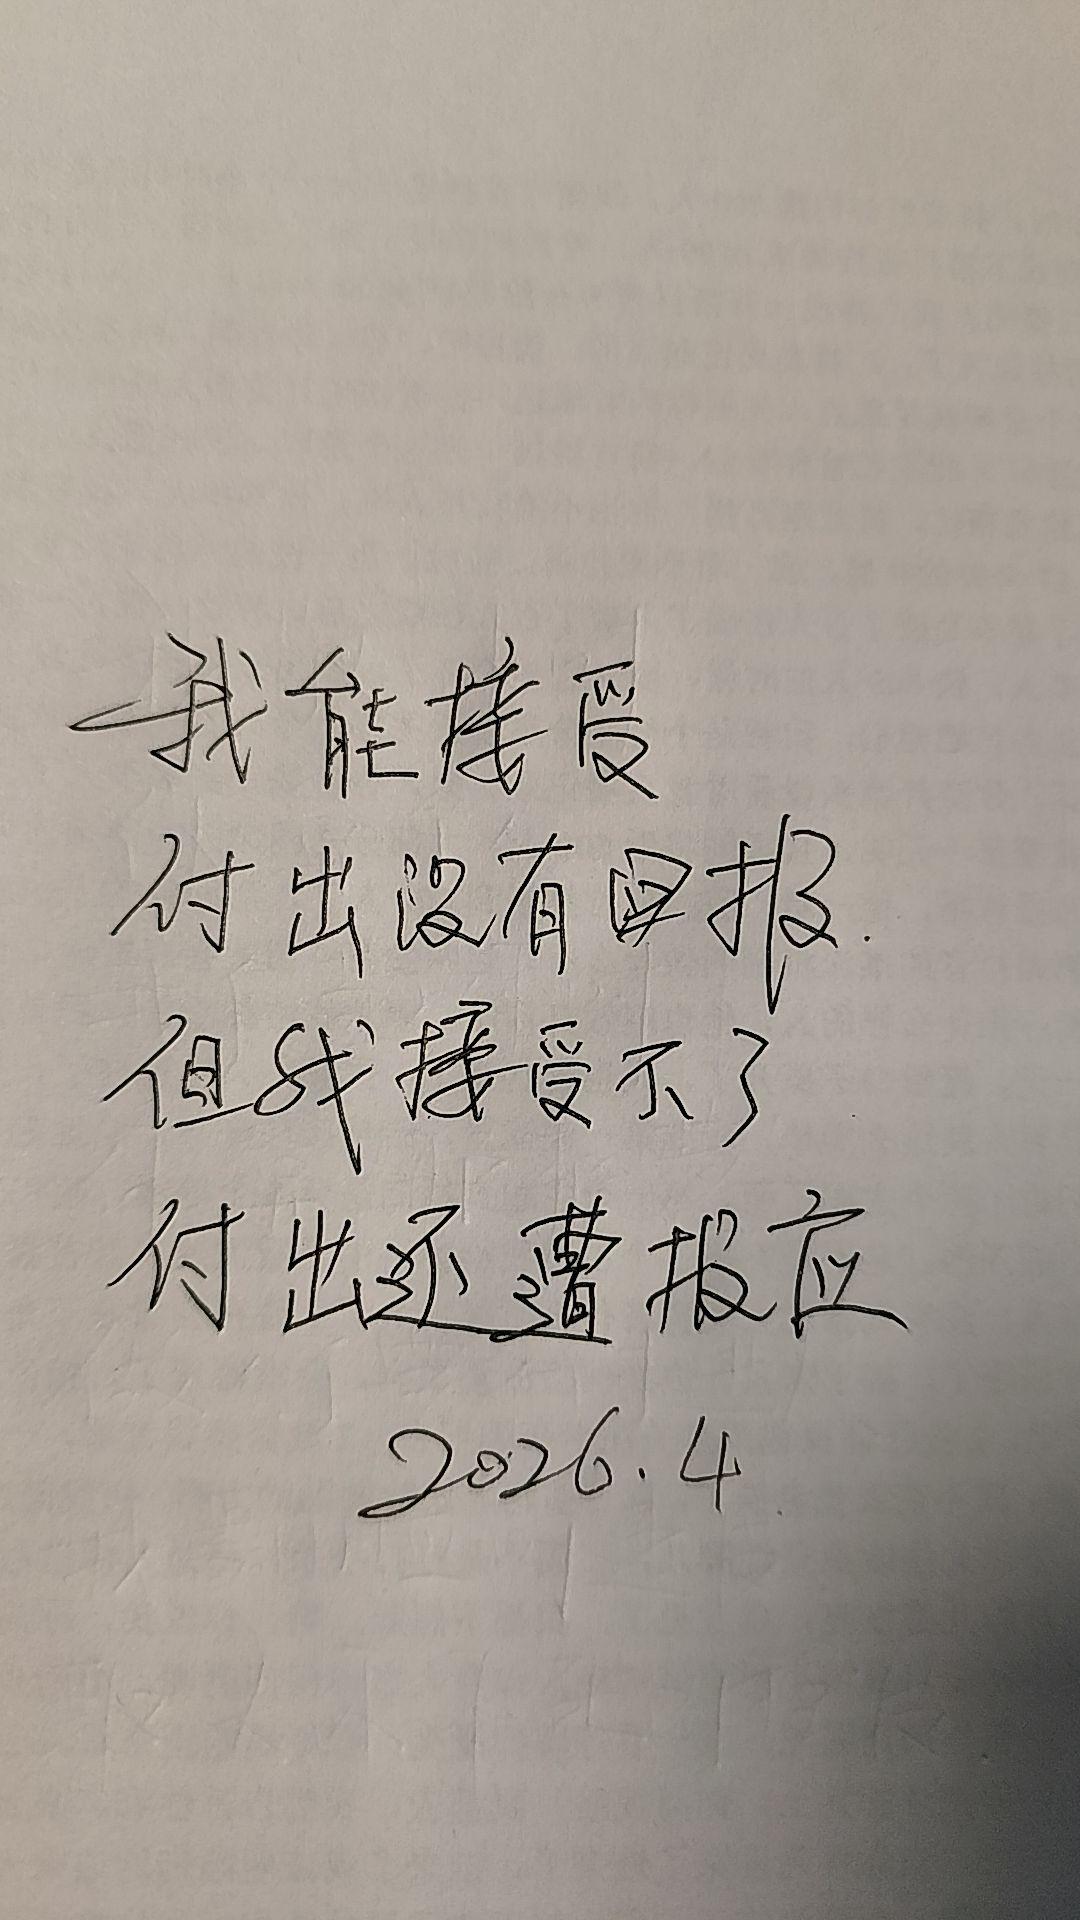 我能接受
付出没有回报.
但我接受不了
付出还遭报应
2026.4